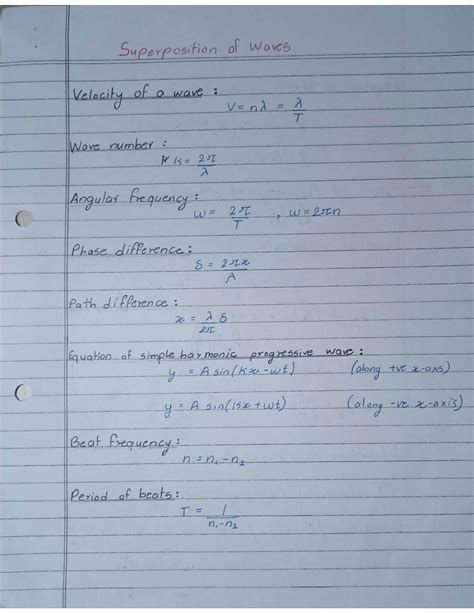 Superposition of waves
Velocity of a wave :
V = nλ = λ/T
Wave number :
K = 2π/λ
Angular frequency :
w = 2π/T , w = 2πn
Phase difference :
δ = 2πx/A
Path difference :
x = λ/2π δ
Equation of simple harmonic progressive wave :
y = A sin(Kx - wt) (along +ve x-axis)
y = A sin(Kx + wt) (along -ve x-axis)
Beat frequency :
n = n₁ - n₂
Period of beats :
T = 1/n₁-n₂